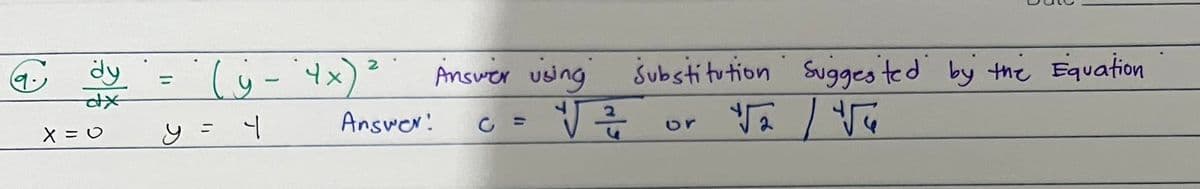 9. dy/dx = (y - 4x)² Answer using substitution suggested by the Equation
x = 0 y = 4 Answer: c = ∜(2/6) or ∜2 / ∜6